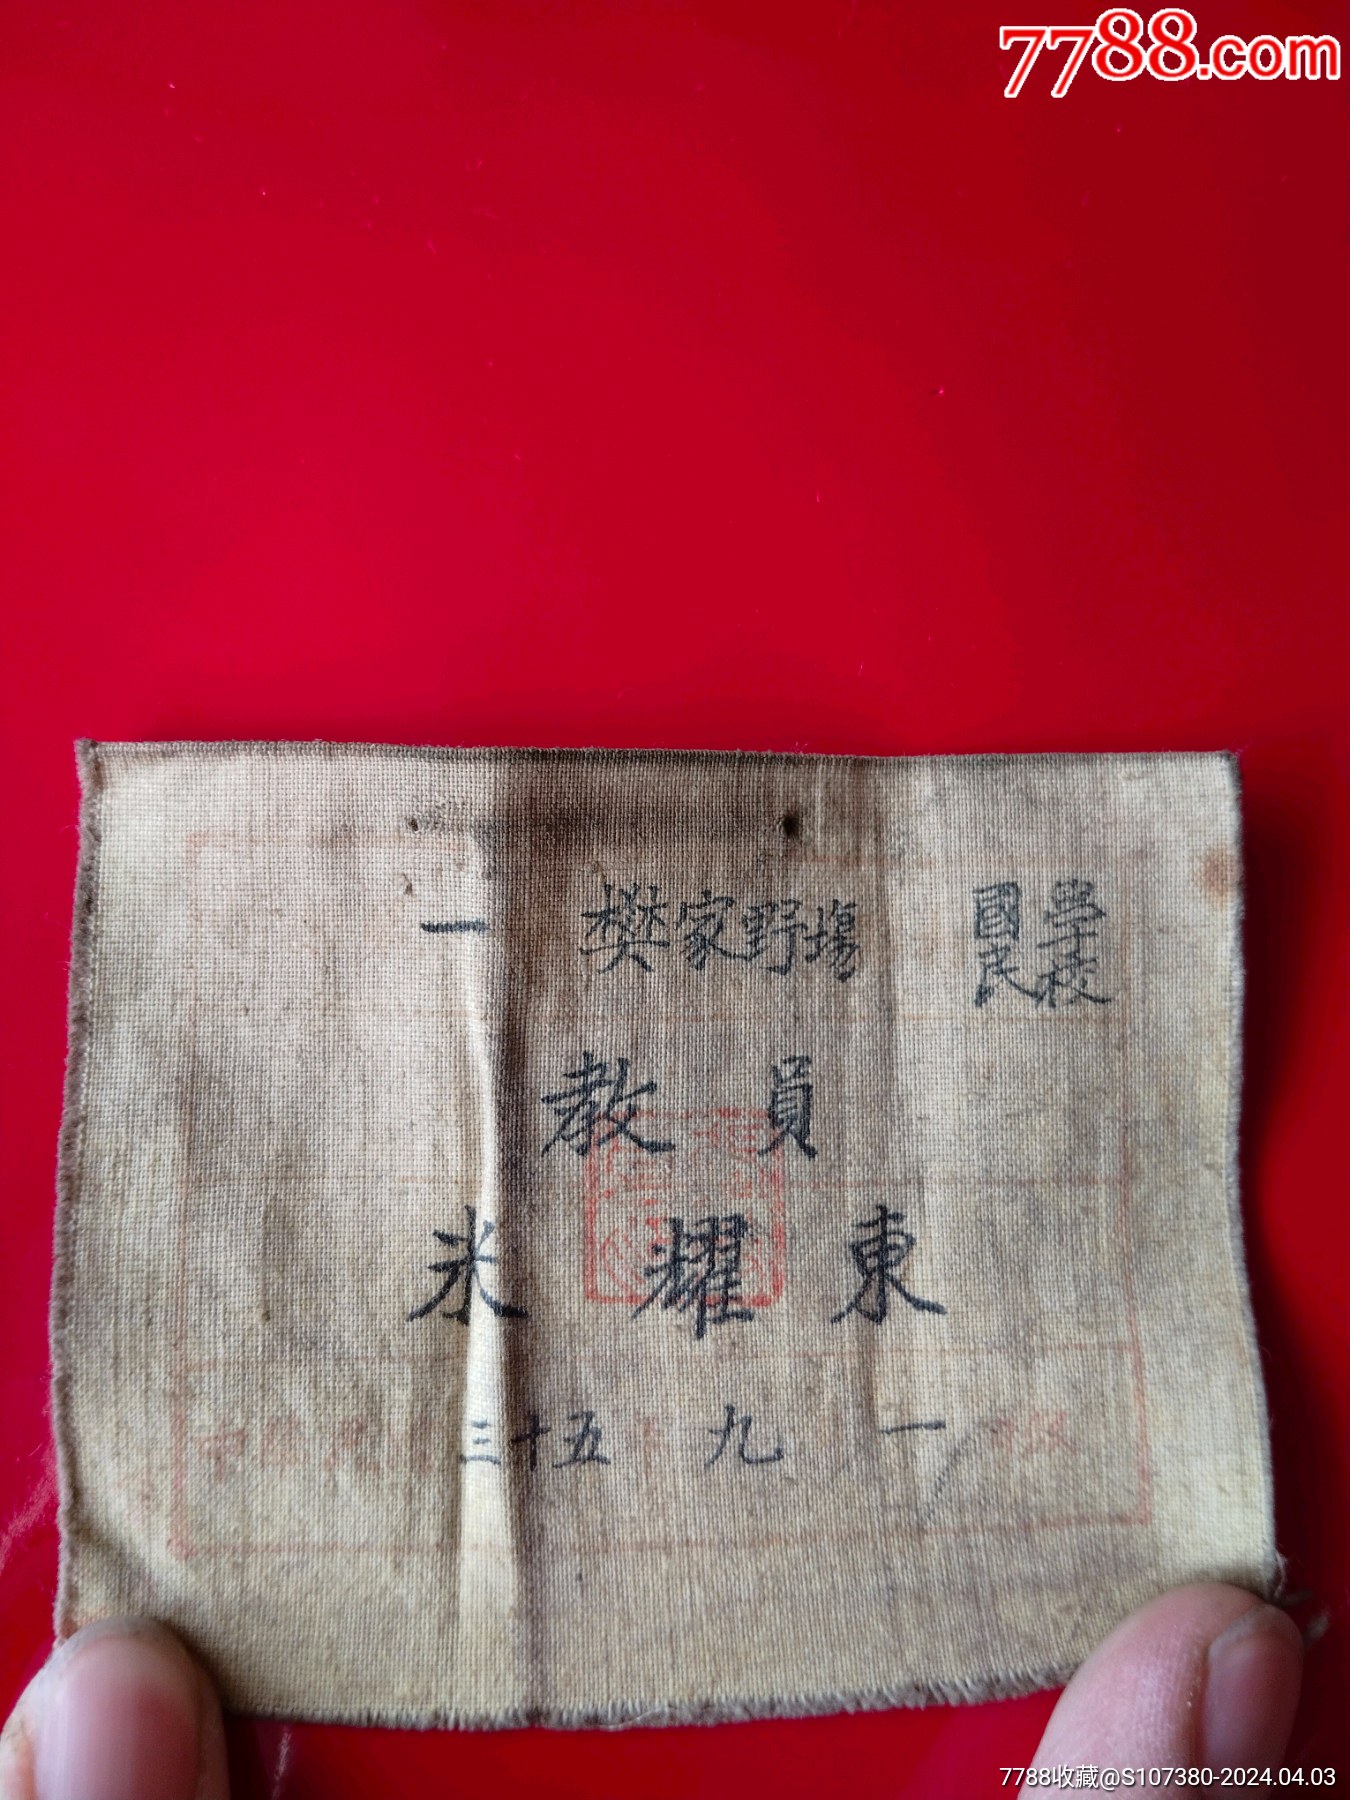 7788.com
一 樊家野場 國民學校
教員
米耀東
三十五 九 一
7788收藏@S107380-2024.04.03